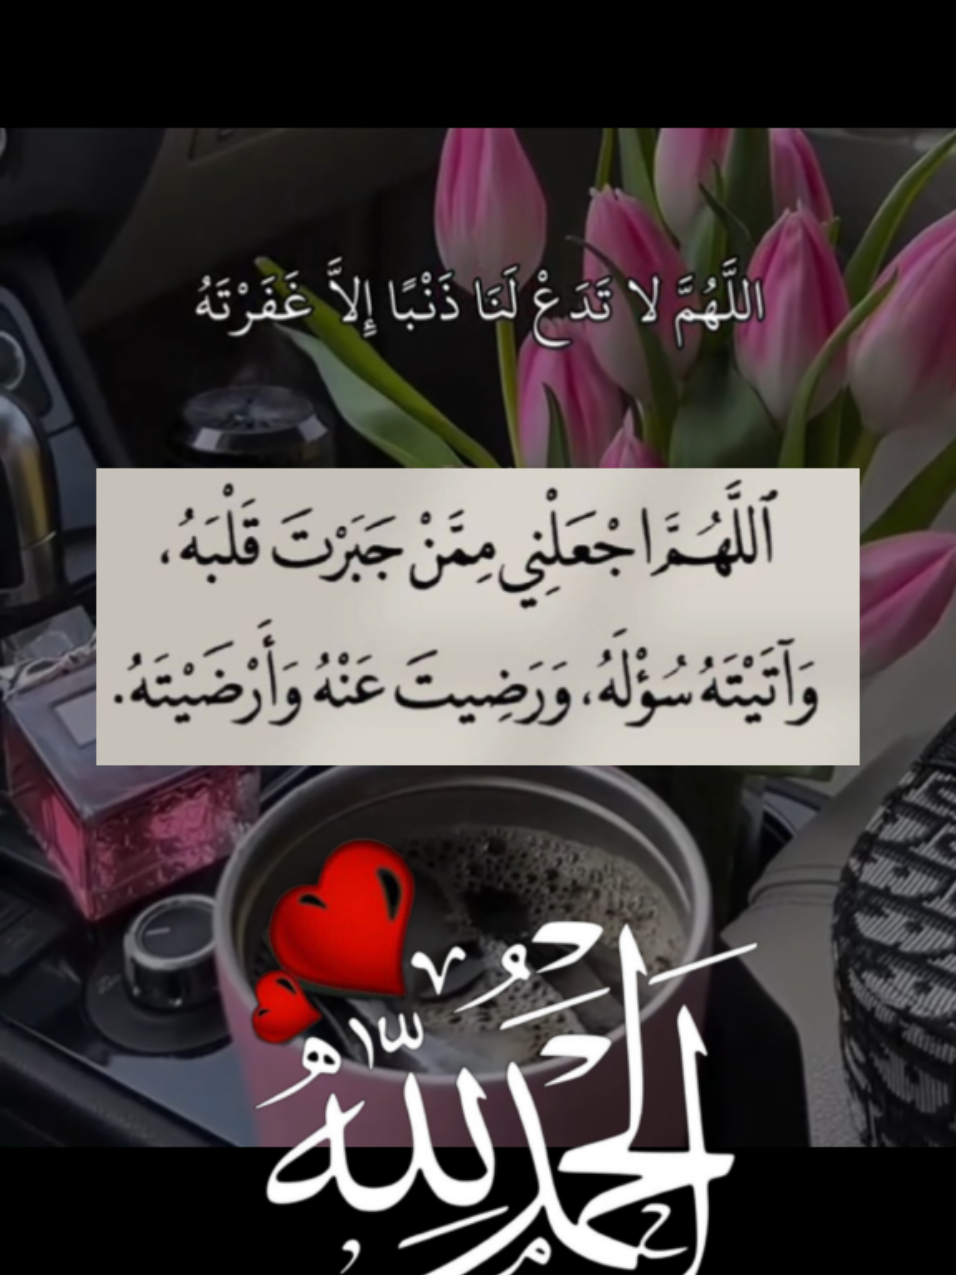 اللَّهُمَّ لا تَدَعْ لَنَا ذَنْبًا إِلاَّ غَفَرْتَهُ
ٱللَّهُمَّ اجْعَلْنِي مِمَّنْ جَبَرْتَ قَلْبَهُ،
وَآتَيْتَهُ سُؤْلَهُ، وَرَضِيتَ عَنْهُ وَأَرْضَيْتَهُ.
الْحَمْدُ لِلّٰهِ